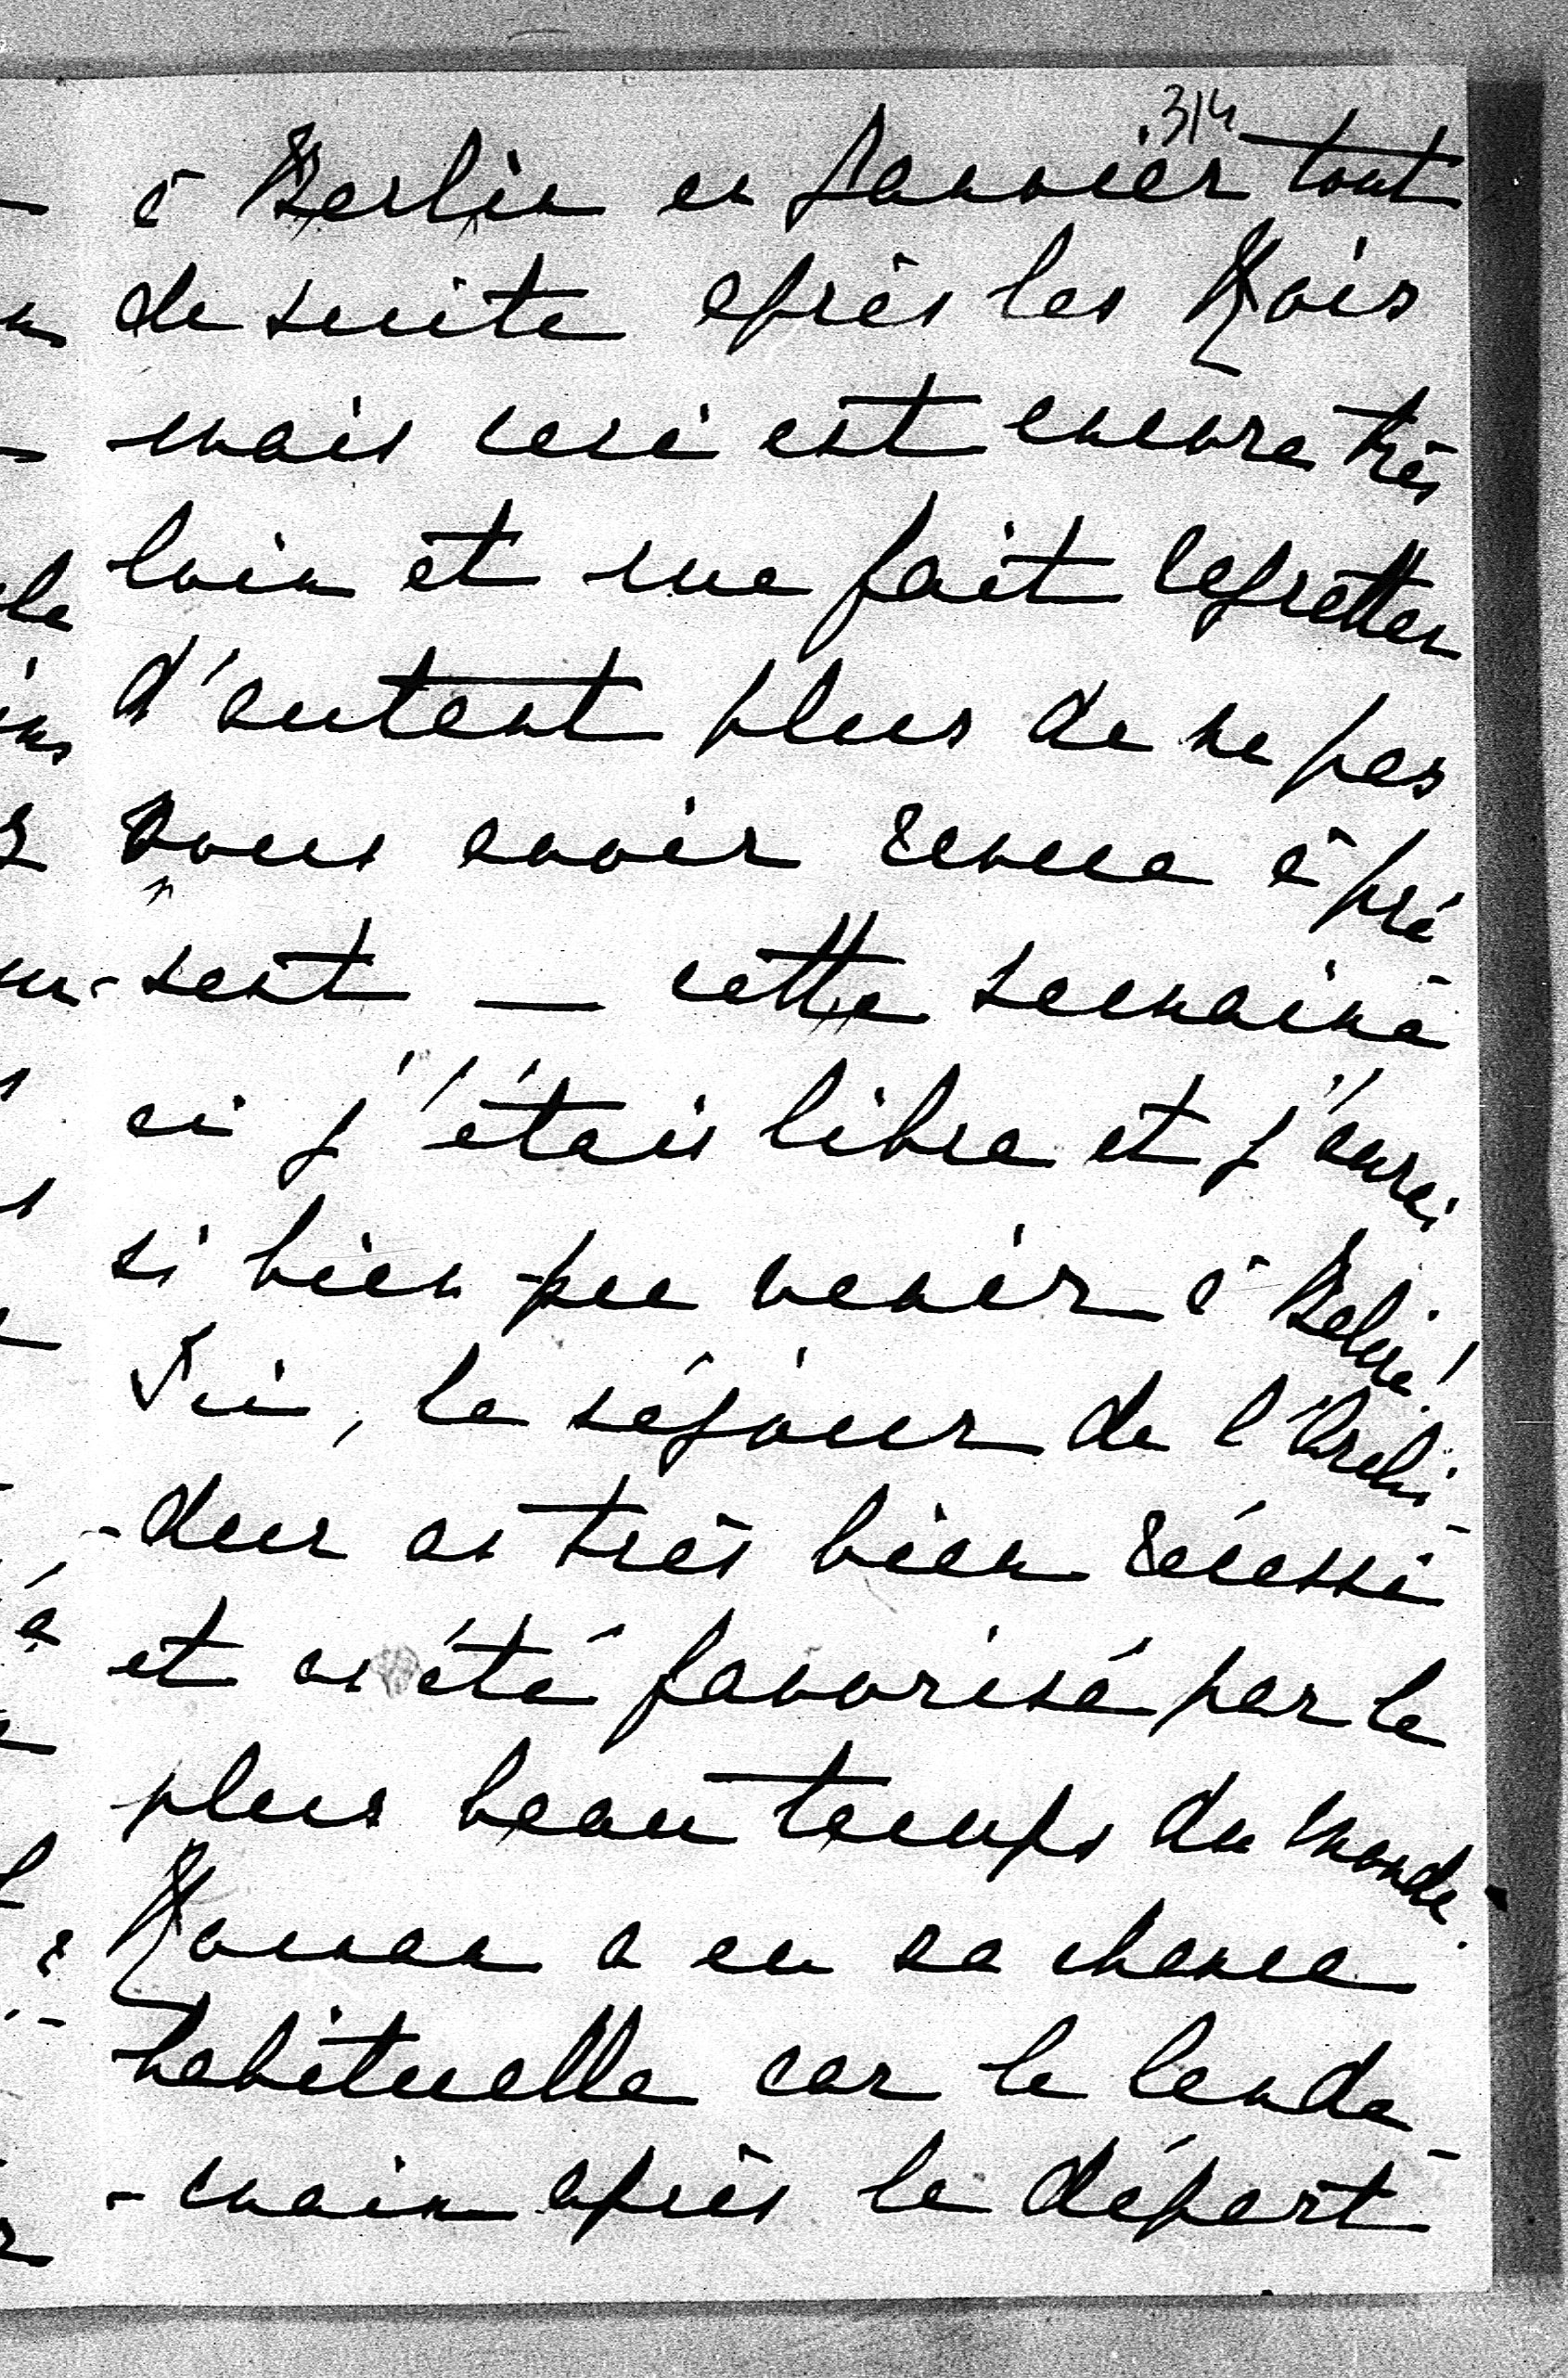 314
à Berlin en Janvier tout
de suite après les Rois
mais ceci est encore très
loin et me fait regretter
d'autant plus de ne pas
vous avoir revue à pré
sent — cette semaine
ci j'étais libre et j'aurai
si bien pu venir à
Ici, le séjour de l'Archi-
-duc a très bien réussi
et a été favorisé par le
plus beau temps du monde.
a eu sa chance
habituelle car le lende-
-main après le départ